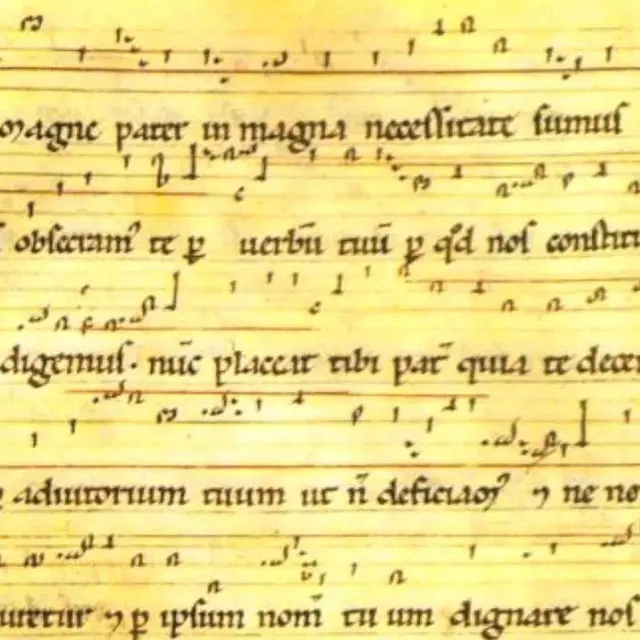 magne pater in magna necessitate sumus
obsecram᾽ te ꝑ uerbū tuū ꝑ qd nos constitu
digemus. nūc placeat tibi pat̄ quia te decet
adiutorium tuum ut n̄ deficiam᾽ ⁊ ne no
uretur ⁊ ꝑ ipsum nom̄ tu um dignare nos